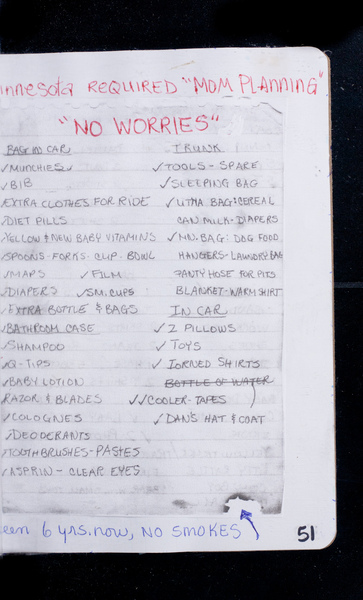 innesota REQUIRED "MOM PLANNING"
"NO WORRIES"
BACK IN CAR
✓MUNCHIES✓
✓BIB
✓EXTRA CLOTHES FOR RIDE
✓DIET PILLS
✓YELLOW & NEW BABY VITAMINS
✓SPOONS-FORKS-CUP-BOWL
✓MAPS ✓FILM
✓DIAPERS ✓SM.CUPS
✓EXTRA BOTTLE & BAGS
✓BATHROOM CASE
✓SHAMPOO
✓Q-TIPS
✓BABY LOTION
RAZOR & BLADES
✓COLOGNES
✓DEODERANTS
✓TOOTHBRUSHES-PASTES
✓ASPRIN-CLEAR EYES
TRUNK
✓TOOLS-SPARE
✓SLEEPING BAG
✓BAG:CEREAL
CAN MILK-DIAPERS
✓MN.BAG: DOG FOOD
HANGERS-LAUNDRY BAG
PANTY HOSE FOR PITS
BLANKET-WARM SHIRT
IN CAR
✓2 PILLOWS
✓TOYS
✓IORNED SHIRTS
BOTTLE OF WATER
✓✓COOLER-TAPES
✓DAN'S HAT & COAT
een 6 yrs. now, NO SMOKES
51